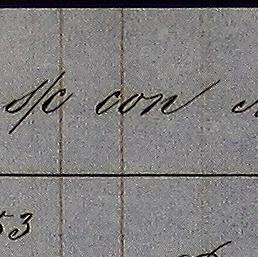 s/c con
53